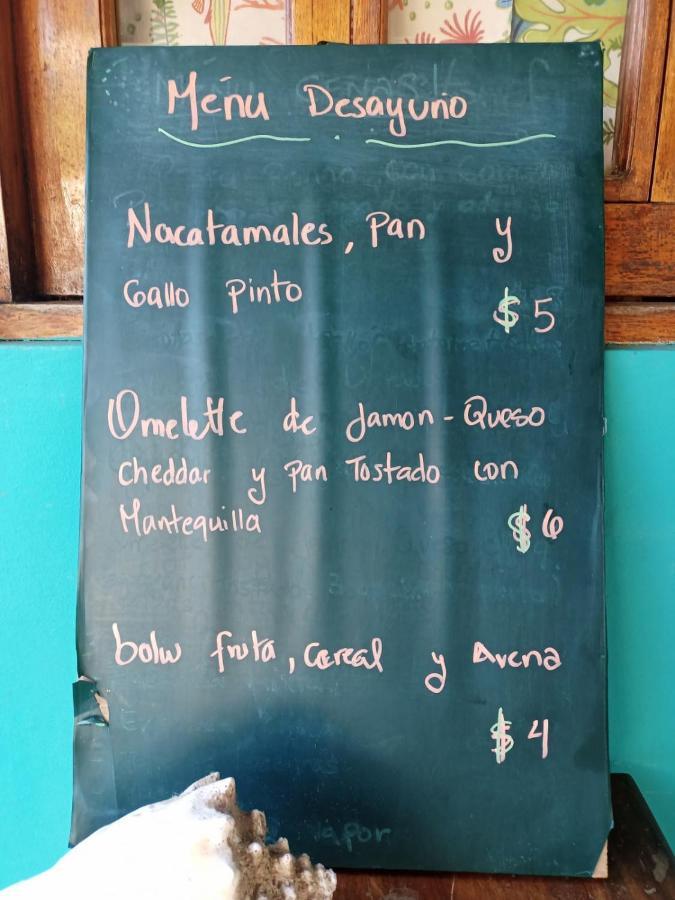 Menú Desayuno
Nacatamales, Pan y
Gallo Pinto $5
Omelette de Jamon-Queso
Cheddar y pan Tostado con
Mantequilla $6
bolw fruta, Cereal y Avena
$4
vapor